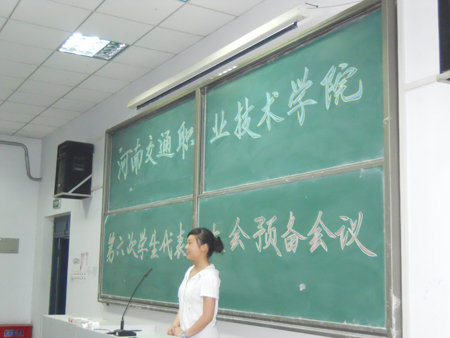 河南交通职业技术学院
第六次学生代表大会预备会议